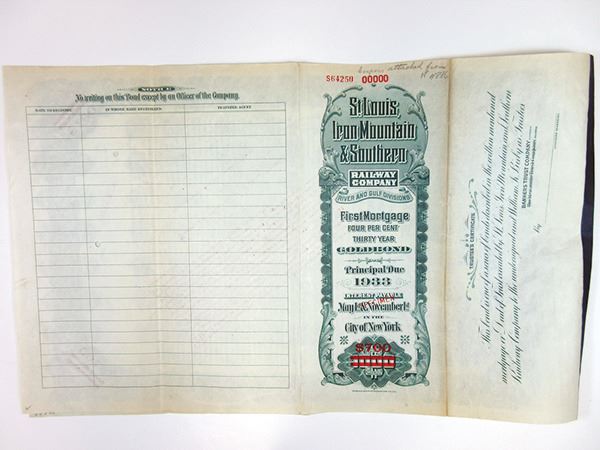 NOTICE
No writing on this Bond except by an Officer of the Company.
DATE TO REGISTRY. IN WHOSE NAME REGISTERED. TRANSFER AGENT
S64250 00000
Coupons attached from
St. Louis,
Iron Mountain
& Southern
RAILWAY
COMPANY
RIVER AND GULF DIVISIONS
First Mortgage
FOUR PER CENT
THIRTY YEAR
GOLD BOND
Principal Due
1933
INTEREST PAYABLE
May 1st & November 1st
IN THE
City of New York
$700
TRUSTEE'S CERTIFICATE
This bond is one of a series of bonds described in the within mentioned
mortgage or Deed of Trust executed by St. Louis, Iron Mountain and Southern
Railway Company to the undersigned and William K. Bixby as Trustee
BANKERS TRUST COMPANY
By